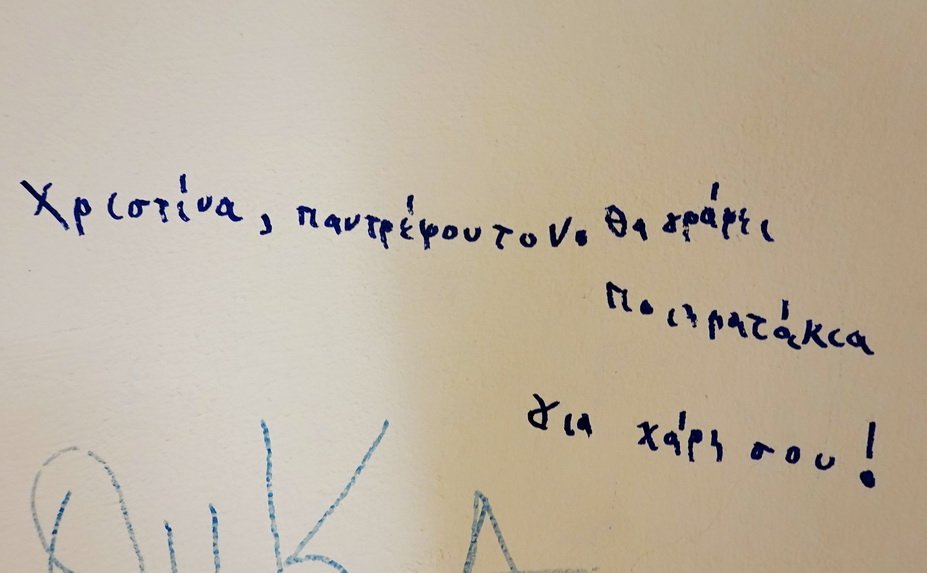 Χριστίνα, παντρέψου τον. Θα γράφει
ποιηματάκια
για χάρη σου!